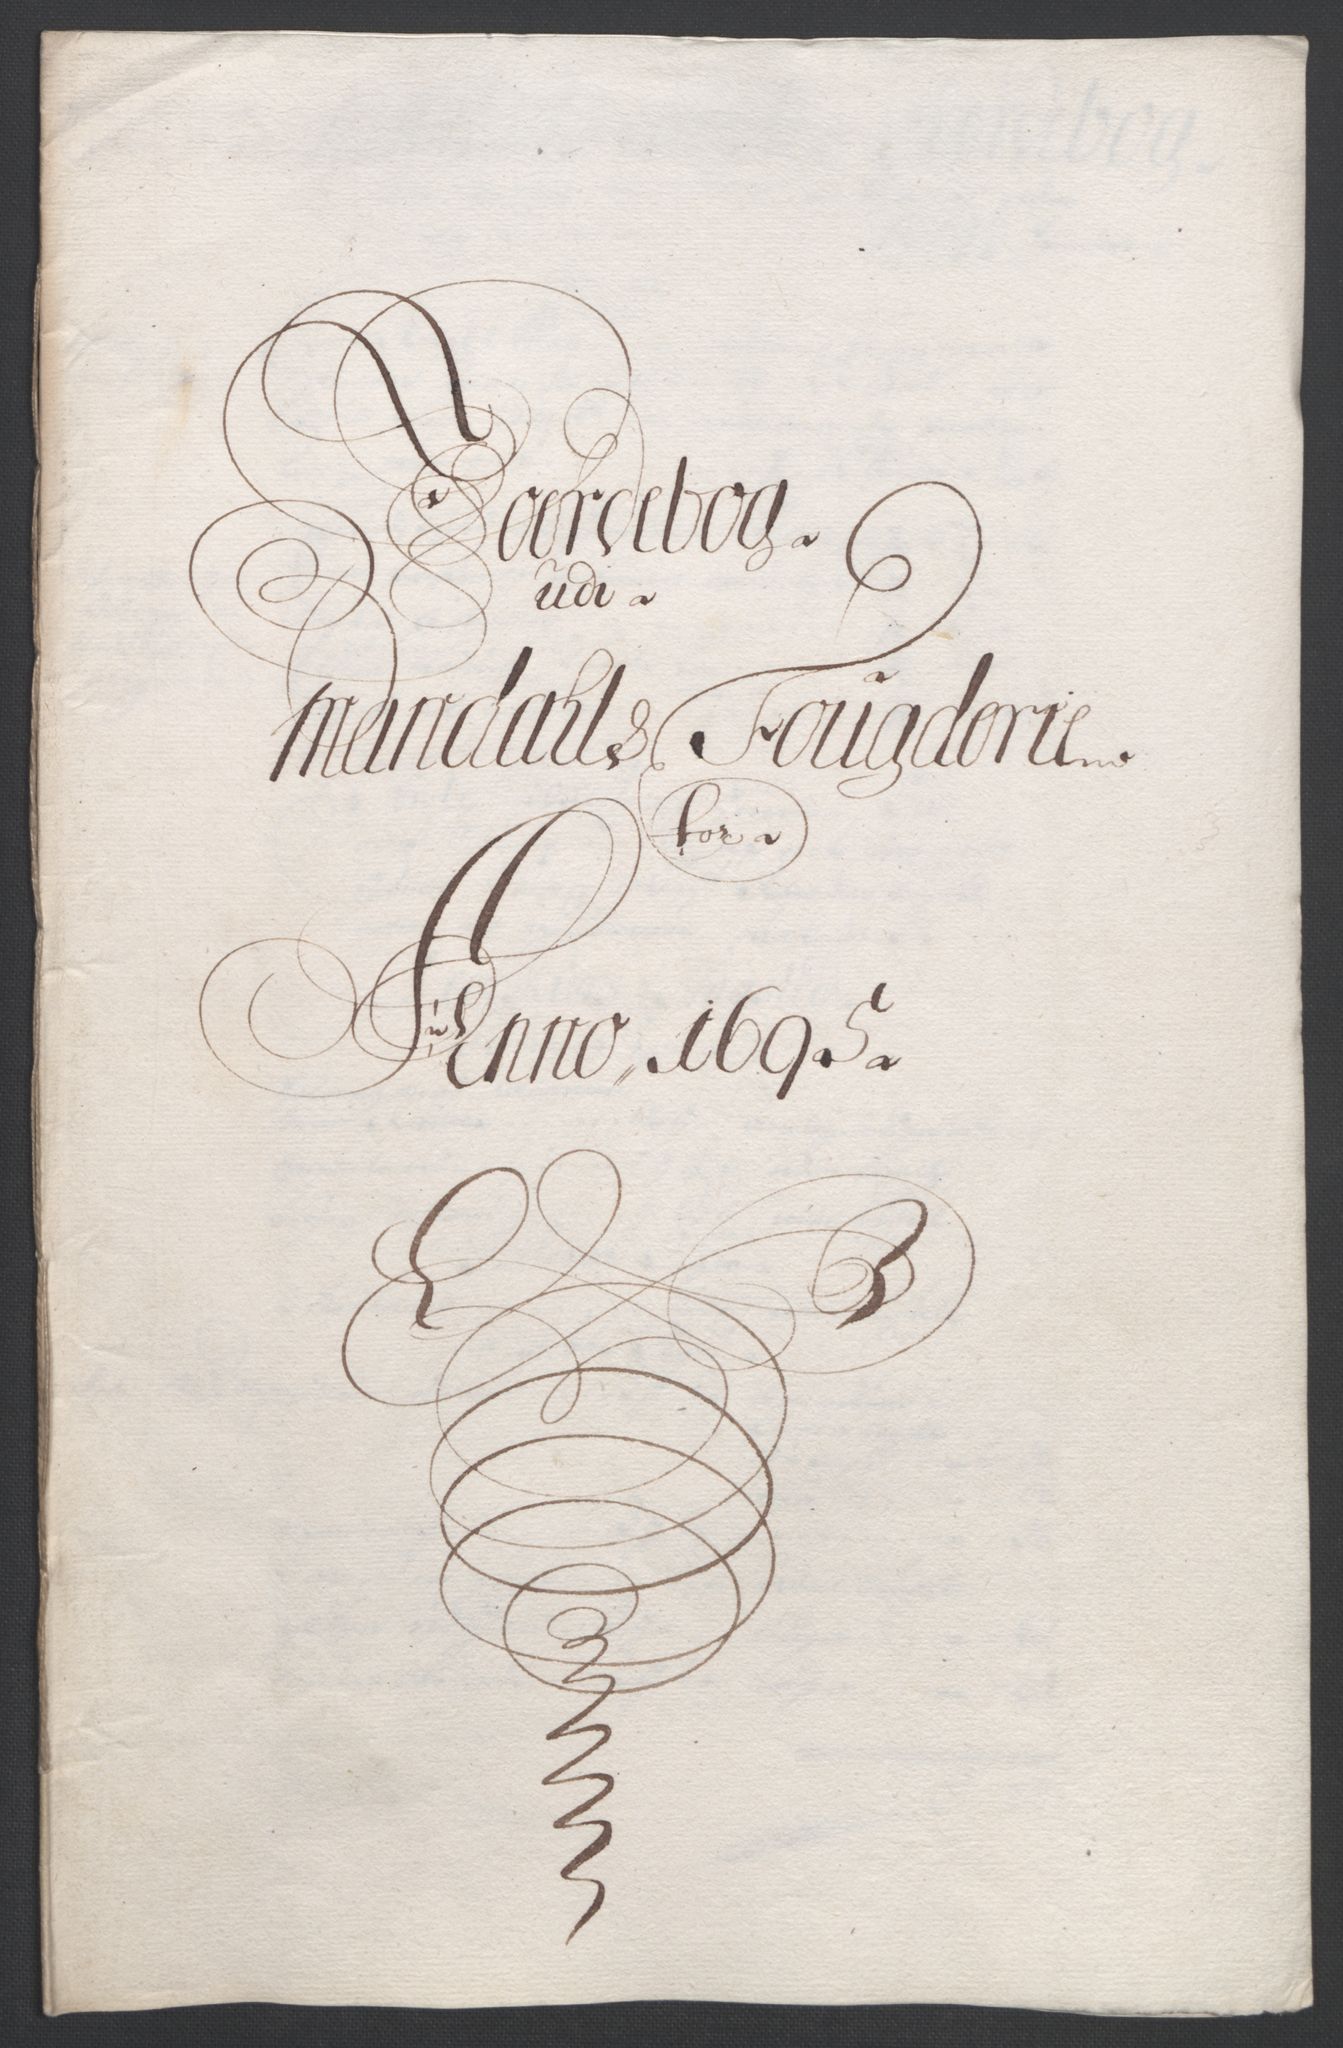 Joerdebog
udi
Mandahls Fougderie
for
Anno 1695